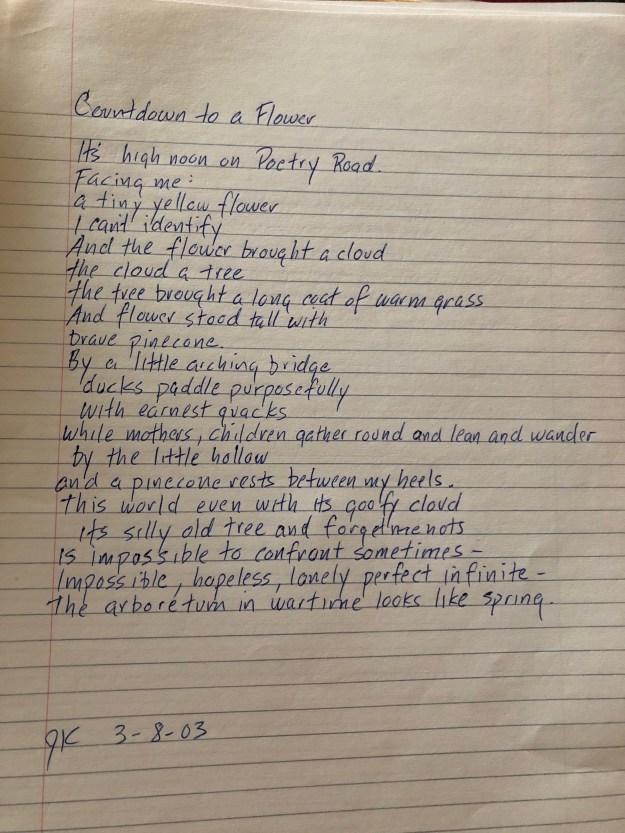 Countdown to a Flower
It's high noon on Poetry Road.
Facing me:
a tiny yellow flower
I can't identify
And the flower brought a cloud
the cloud a tree
the tree brought a long coat of warm grass
And flower stood tall with
brave pinecone.
By a little arching bridge
ducks paddle purposefully
with earnest quacks
while mothers, children gather round and lean and wander
by the little hollow
and a pinecone rests between my heels.
This world even with its goofy cloud
its silly old tree and forgetmenots
is impossible to confront sometimes -
Impossible, hopeless, lonely perfect infinite -
The arboretum in wartime looks like spring.
JK 3-8-03